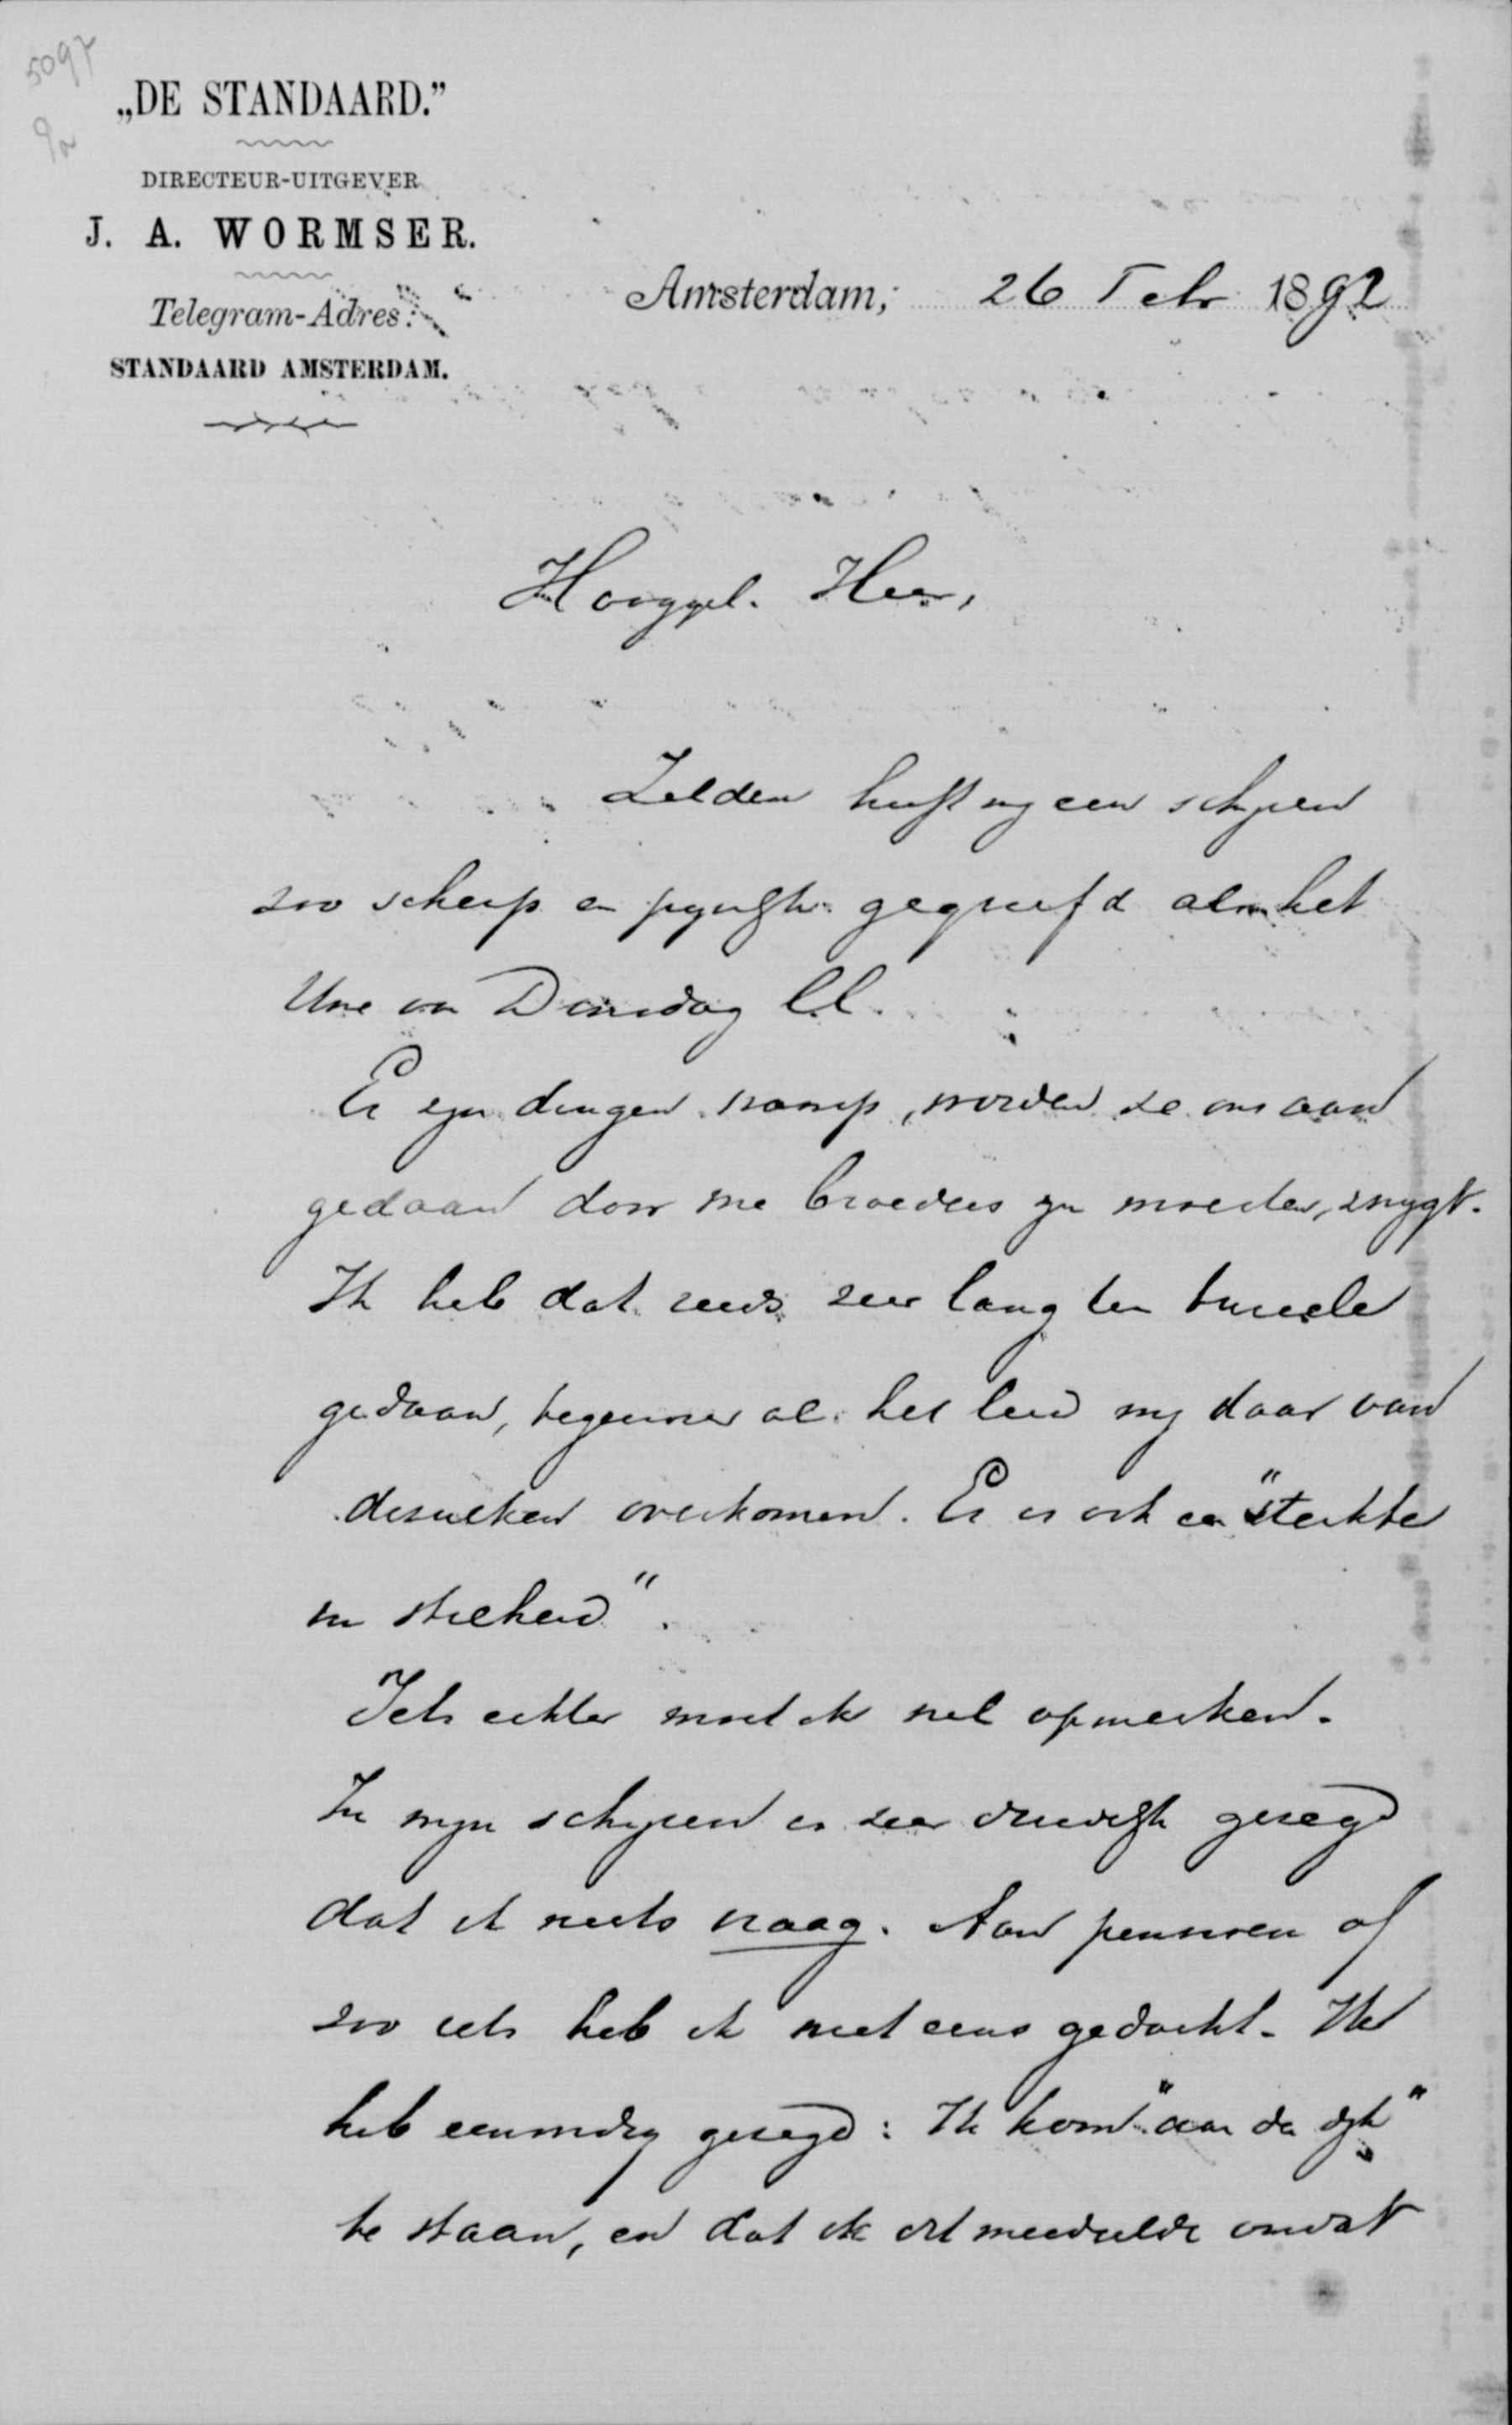 5097
9a
„DE STANDAARD.”
DIRECTEUR-UITGEVER
J. A. WORMSER.
Telegram-Adres:
STANDAARD AMSTERDAM.
Amsterdam, 26 Febr 1892
Hooggel. Heer,
Zelden heeft mij een schrijven
zoo scherp en pijnlijk gegriefd als het
Uwe van Dinsdag l.l.
Er zijn dingen waarop, worden ze ons aan
gedaan door wie broeders zijn moesten, zwijgt.
Ik heb dat reeds zeer lang ten tweede
gedaan, tegenover al het leed mij daar van
dezulken overkomen. Er is ook een "sterkte
in stilheid".
Iets echter moet ik wel opmerken.
In mijn schrijven is zeer duidelijk gezegd
dat ik niets vraag. Aan pensioen of
zoo iets heb ik niet eens gedacht. Ik
heb eenvoudig gezegd: Ik kom "aan de dijk"
te staan, en dat ik dit meedeelde omdat